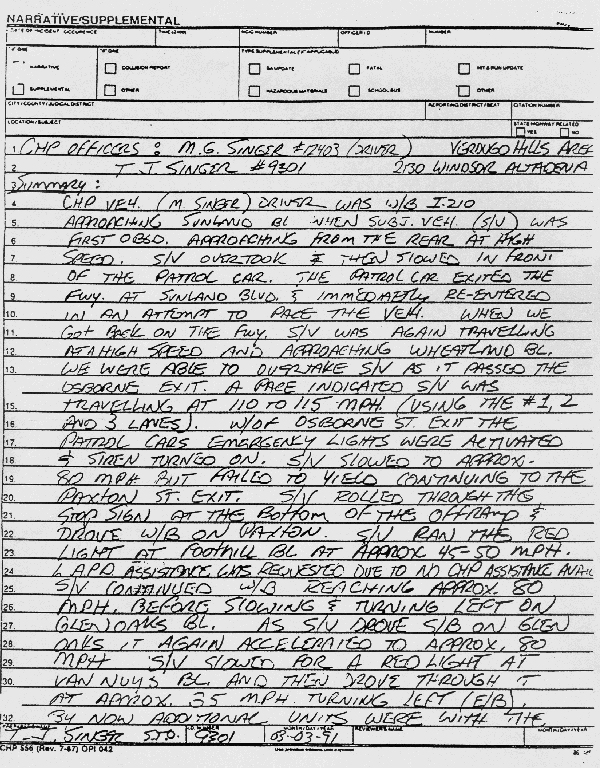 NARRATIVE/SUPPLEMENTAL
DATE OF INCIDENT/OCCURENCE TIME (2400) NCIC NUMBER OFFICER I.D. NUMBER
"X" ONE "X" ONE TYPE SUPPLEMENTAL ("X" APPLICABLE)
NARRATIVE COLLISION REPORT BA UPDATE FATAL HIT & RUN UPDATE
SUPPLEMENTAL OTHER HAZARDOUS MATERIALS SCHOOL BUS OTHER
CITY/COUNTY/JUDICIAL DISTRICT REPORTING DISTRICT/BEAT CITATION NUMBER
LOCATION/SUBJECT STATE HIGHWAY RELATED
YES NO
1. CHP OFFICERS : M.G. SINGER #12403 (DRIVER) VERDUGO HILLS AREA
2. T.J. SINGER #9301 2130 WINDSOR ALTADENA
3. SUMMARY :
4. CHP VEH. (M. SINGER) DRIVER WAS W/B I-210
5. APPROACHING SUNLAND BL WHEN SUBJ. VEH. (S/V) WAS
6. FIRST OBSD. APPROACHING FROM THE REAR AT HIGH
7. SPEED. S/V OVERTOOK & THEN SLOWED IN FRONT
8. OF THE PATROL CAR. THE PATROL CAR EXITED THE
9. FWY. AT SUNLAND BLVD. & IMMEDIATELY RE-ENTERED
10. IN AN ATTEMPT TO PACE THE VEH. WHEN WE
11. GOT BACK ON THE FWY. S/V WAS AGAIN TRAVELLING
12. AT A HIGH SPEED AND APPROACHING WHEATLAND BL.
13. WE WERE ABLE TO OVERTAKE S/V AS IT PASSED THE
OSBORNE EXIT. A PACE INDICATED S/V WAS
15. TRAVELLING AT 110 TO 115 MPH. (USING THE #1, 2
16. AND 3 LANES). W/OF OSBORNE ST. EXIT THE
17. PATROL CARS EMERGENCY LIGHTS WERE ACTIVATED
18. & SIREN TURNED ON. S/V SLOWED TO APPROX.
19. 80 MPH BUT FAILED TO YIELD CONTINUING TO THE
20. PAXTON ST. EXIT. S/V ROLLED THROUGH THE
21. STOP SIGN AT THE BOTTOM OF THE OFFRAMP &
22. DROVE W/B ON PAXTON. S/V RAN THE RED
23. LIGHT AT FOOTHILL BL AT APPROX 45-50 MPH.
24. LAPD ASSISTANCE WAS REQUESTED DUE TO NO CHP ASSISTANCE AVAIL
25. S/V CONTINUED W/B REACHING APPROX. 80
26. MPH. BEFORE SLOWING & TURNING LEFT ON
27. GLENOAKS BL. AS S/V DROVE S/B ON GLEN
28. OAKS IT AGAIN ACCELERATED TO APPROX. 80
29. MPH S/V SLOWED FOR A RED LIGHT AT
30. VAN NUYS BL. AND THEN DROVE THROUGH IT
AT APPROX. 35 MPH. TURNING LEFT (E/B).
32. BY NOW ADDITIONAL UNITS WERE WITH THE
I.D. NUMBER MONTH/DAY/YEAR REVIEWER'S NAME MONTH/DAY/YEAR
T.J. SINGER S.T.O. 9301 03-03-91
CHP 556 (Rev. 7-87) OPI 042